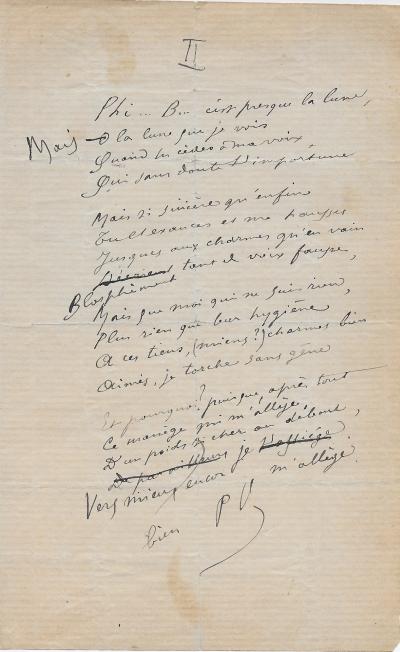 II
Phi... B... c'est presque la lune,
Mais O la lune que je vois
Quand tu cèdes à ma voix,
Qui sans doute t'importune
Mais si sincère qu'enfin
Tu l'exauces et me hausses
Jusques aux charmes qu'en vain
Blasphèment tant de voix fausses,
Mais que moi qui ne suis rien
Plus rien que leur hygiène,
A ces tiens, (miens?) charmes bien
Aimés, je torche sans gêne
Et pourquoi? puisque, après tout
Ce manège qui m'allège
D'un poids si cher au débout,
De par ailleurs je l'assiège
Vers mieux encor m'allège.
bien PV